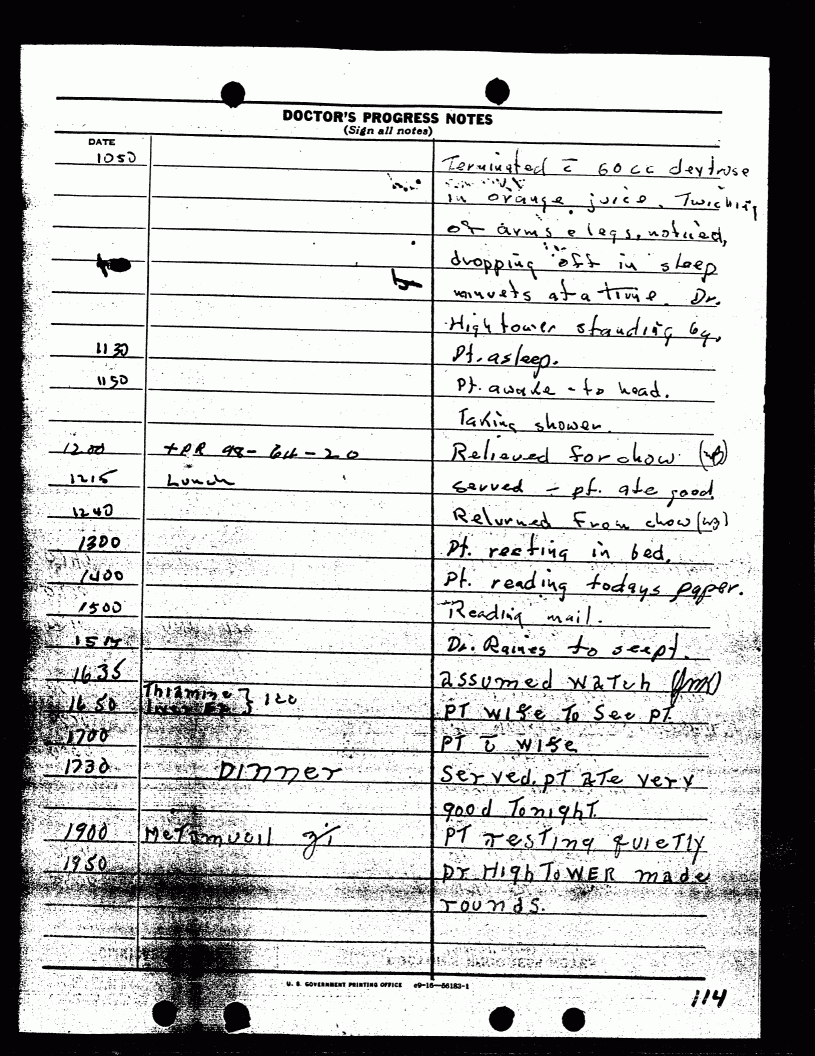 DOCTOR'S PROGRESS NOTES
(Sign all notes)
DATE
1050 Terminated c̄ 60cc dextrose
in orange juice. Twiching
of arms & legs, noticed,
dropping off in sleep
minuets at a time. Dr.
Hightower standing by.
1130 Pt. asleep.
1150 Pt. awake - to head.
Taking shower.
1200 TPR 98-64-20 Relieved for chow
1215 Lunch served - pt. ate good
1240 Returned from chow
1300 Pt. resting in bed.
1400 Pt. reading todays paper.
1500 Reading mail.
Dr. Raines to see pt.
1635 assumed watch
1650 Thiamine } PT wife To See pt.
1700 PT c̄ wife
1730 Dinner Served. pt ATE very
good Tonight.
1900 MeTamucil PT resting quietly
1950 Dr HighTOWER made
rounds.
U. S. GOVERNMENT PRINTING OFFICE c9-16—56183-1
114